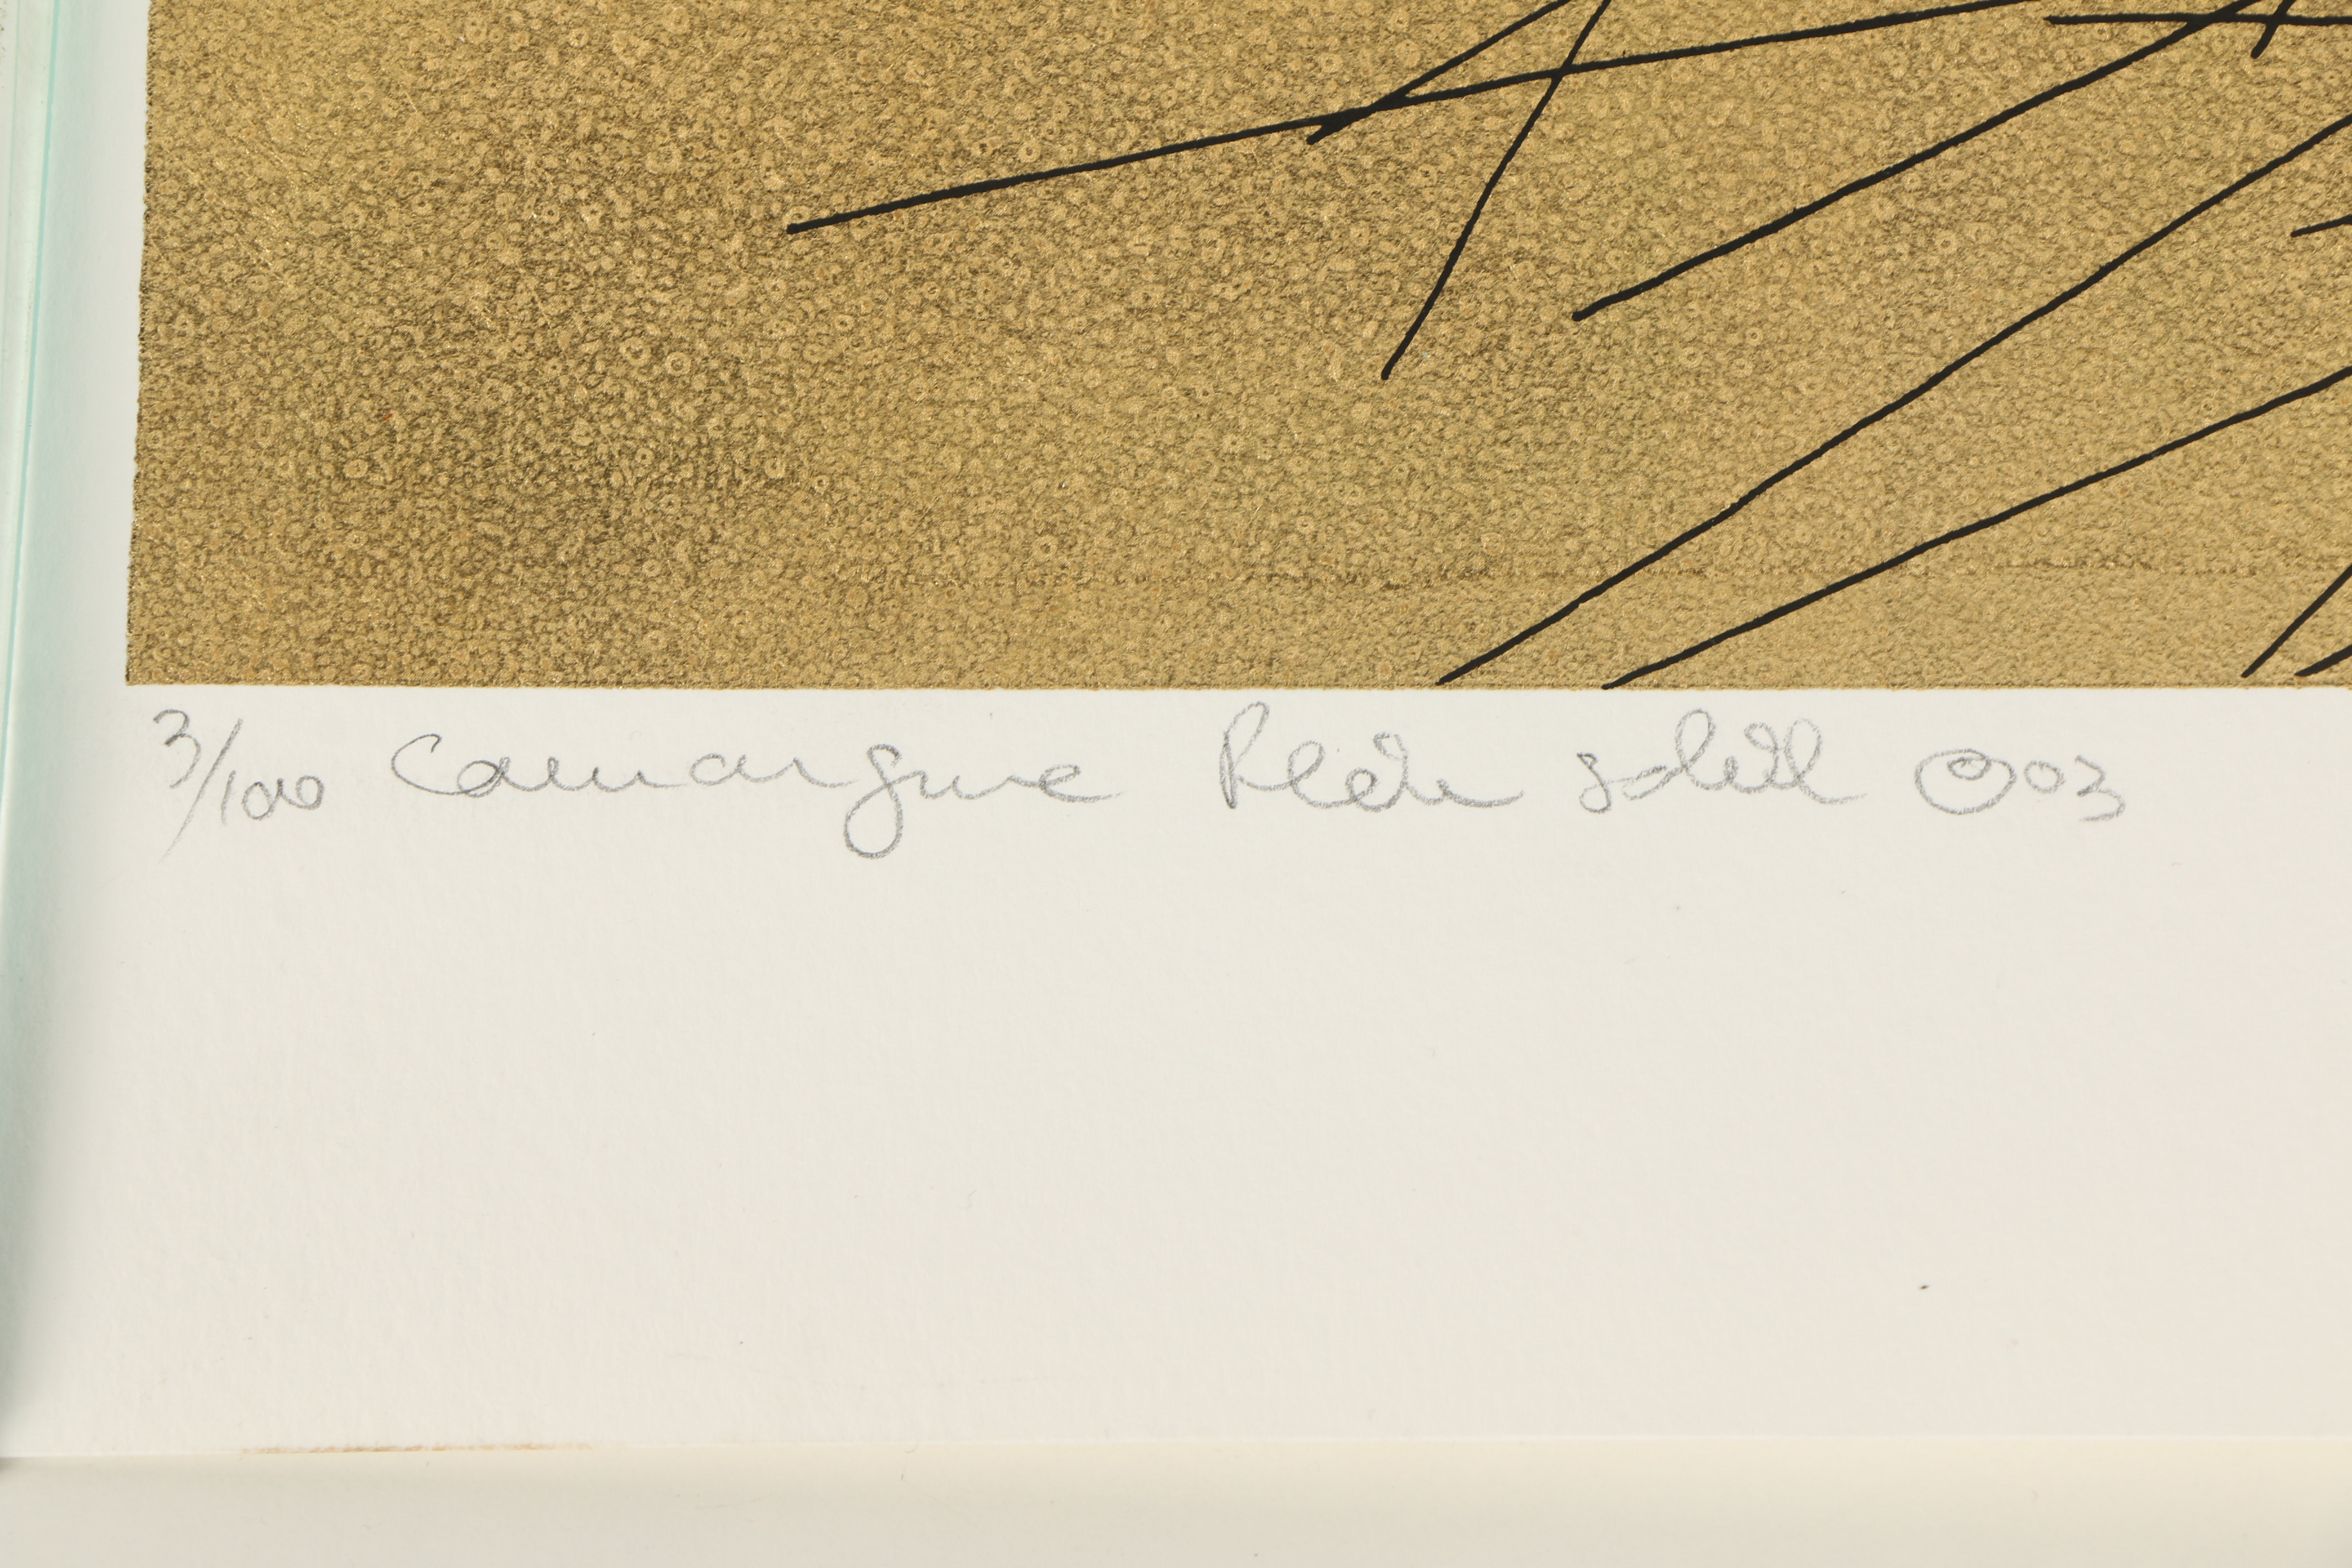 3/100 Camargue Plein soleil 003